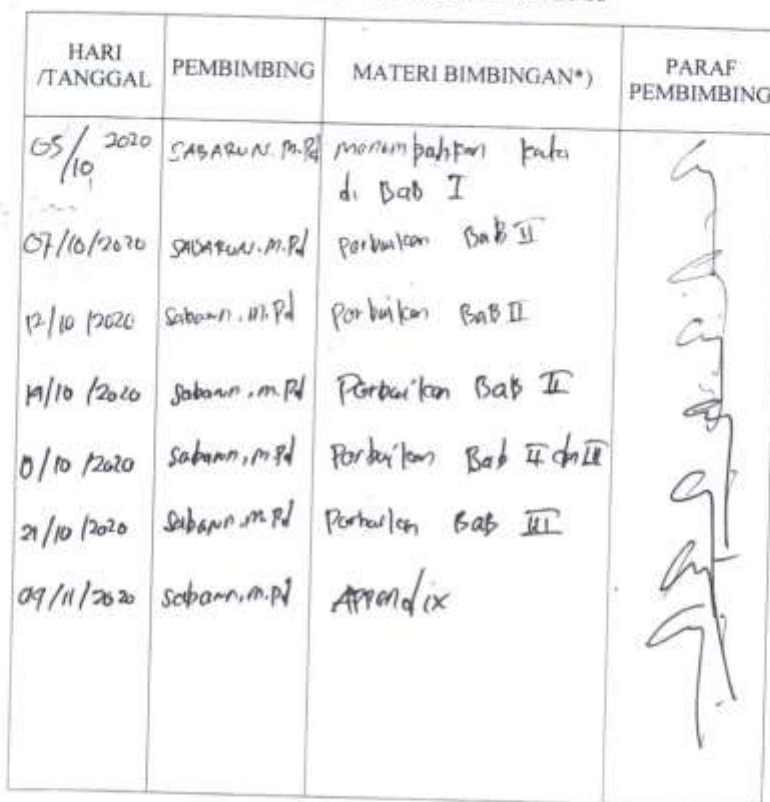 HARI /TANGGAL PEMBIMBING MATERI BIMBINGAN*) PARAF PEMBIMBING
05/10 2020 SABARUN. M.Pd menambahkan kata
di Bab I
07/10/2020 SABARUN. M.Pd Perbaikan Bab II
12/10/2020 Sabarun, M.Pd Perbaikan Bab II
/10/2020 Sabarun, M.Pd Perbaikan Bab II
/10/2020 Sabarun, M.Pd Perbaikan Bab II dan III
21/10/2020 Sabarun, M.Pd Perbaikan Bab III
09/11/2020 Sabarun, M.Pd Appendix